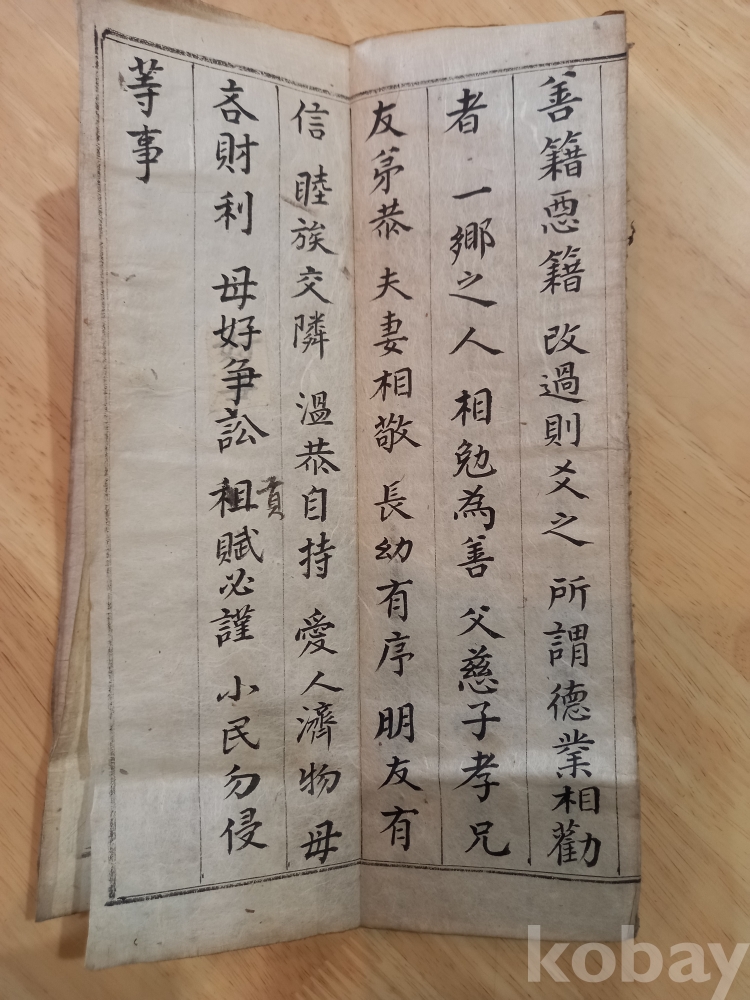 善籍惡籍 改過則爻之 所謂德業相勸
者 一鄉之人 相勉為善 父慈子孝兄
友弟恭 夫妻相敬 長幼有序 朋友有
信 睦族交隣 溫恭自持 愛人濟物 毋
吝財利 毋好爭訟 租賦必謹 小民勿侵
貢
等事
kobay